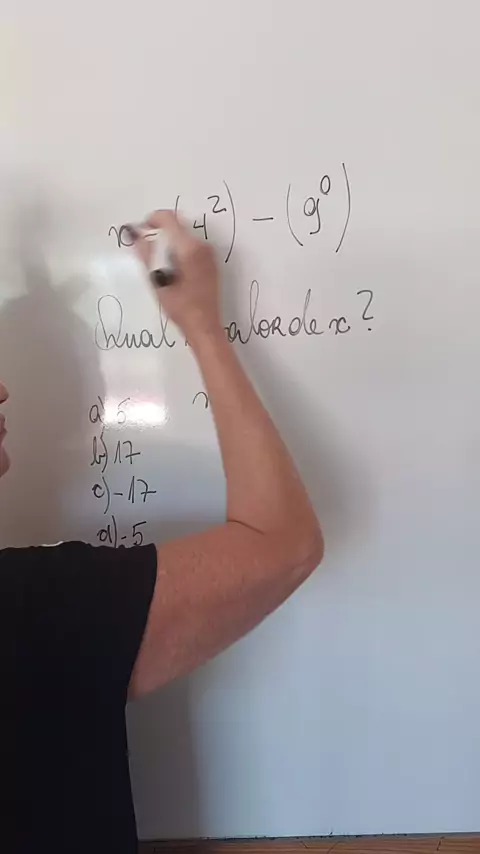 x = (4²) - (9⁰)
Qual valor de x?
a) 5
b) 17
c) -17
d) -5